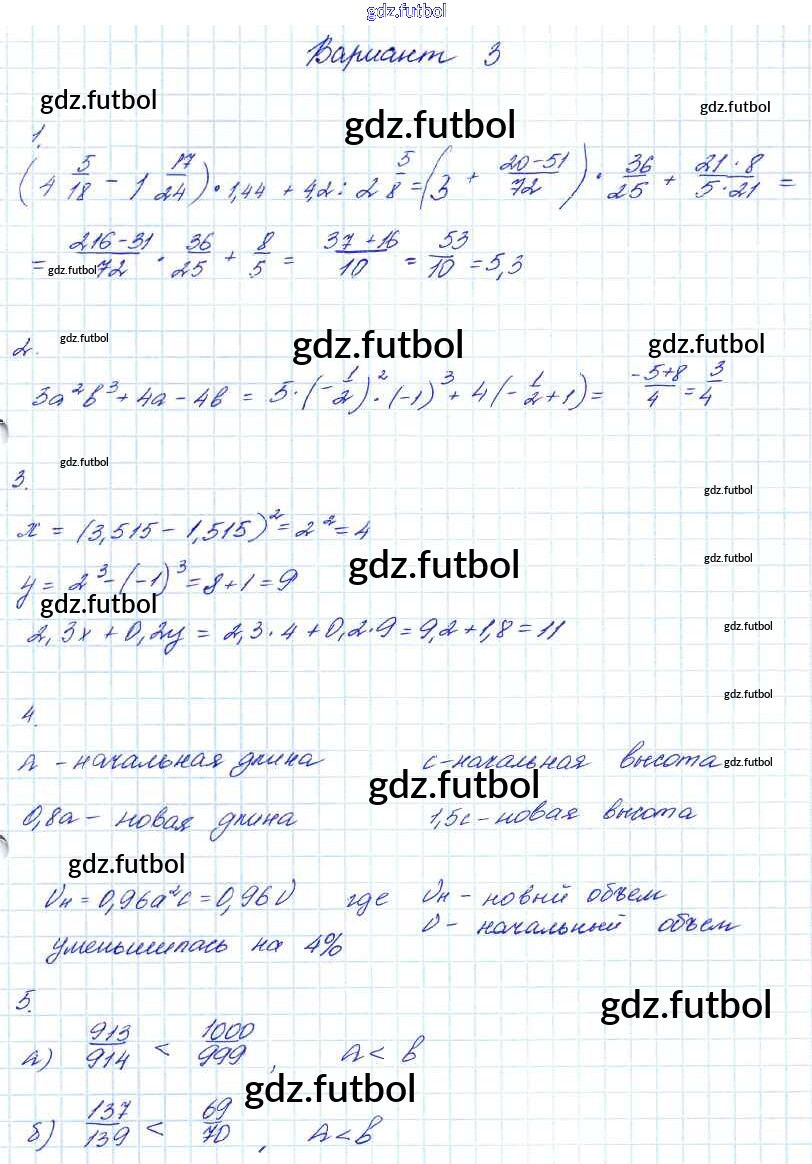 gdz.futbol
Вариант 3
gdz.futbol
gdz.futbol
gdz.futbol
1.
(4 5/18 - 1 17/24) · 1,44 + 4,2 : 2 5/8 = (3 + (20-51)/72) · 36/25 + (21·8)/(5·21) =
= (216-31)/72 · 36/25 + 8/5 = (37+16)/10 = 53/10 = 5,3
gdz.futbol
gdz.futbol
gdz.futbol
gdz.futbol
2.
5a²b³ + 4a - 4b = 5·(-1/2)²·(-1)³ + 4(-1/2+1) = (-5+8)/4 = 3/4
gdz.futbol
3.
gdz.futbol
x = (3,515 - 1,515)² = 2² = 4
gdz.futbol
gdz.futbol
y = 2³ - (-1)³ = 8 + 1 = 9
gdz.futbol
2,3x + 0,2y = 2,3·4 + 0,2·9 = 9,2 + 1,8 = 11
gdz.futbol
gdz.futbol
4.
a - начальная длина c - начальная высота
gdz.futbol
gdz.futbol
0,8a - новая длина 1,5c - новая высота
gdz.futbol
Vн = 0,96a²c = 0,96V где Vн - новый объем
V - начальный объем
уменьшилась на 4%
5.
gdz.futbol
а) 913/914 < 1000/999, A < B
gdz.futbol
б) 137/139 < 69/70, A < B